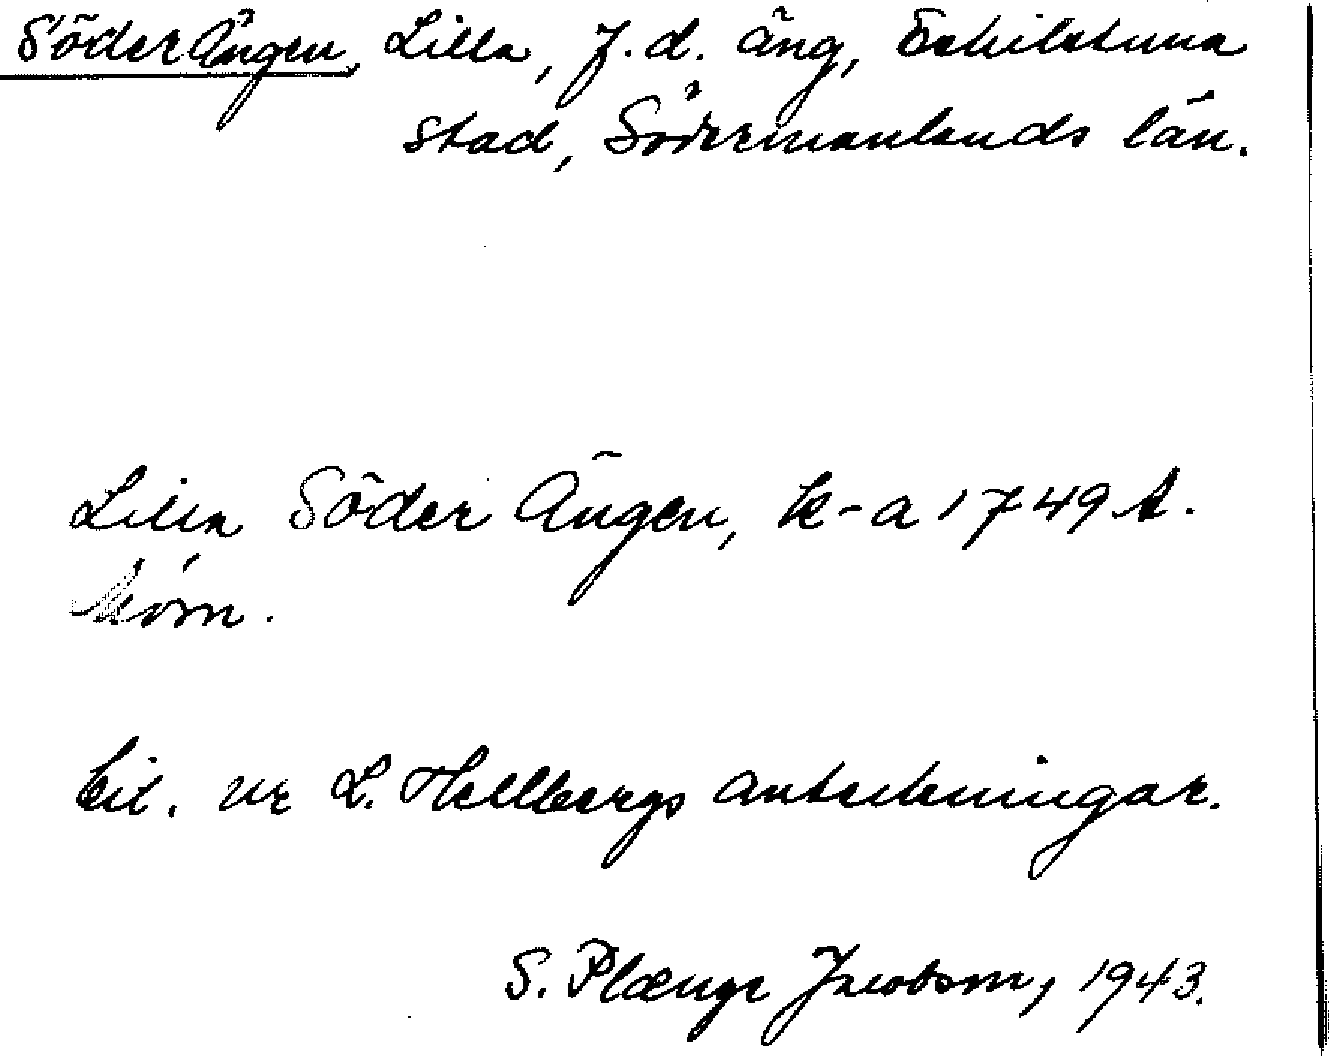 Söder Ängen, Lilla, f.d. äng, Eskilstuna
stad, Södermanlands län.
Lilla Söder Ängen, k-a 1749 A.
Mörn.
Cit. ur L. Hellbergs anteckningar.
S. Plænge Jacobson, 1943.